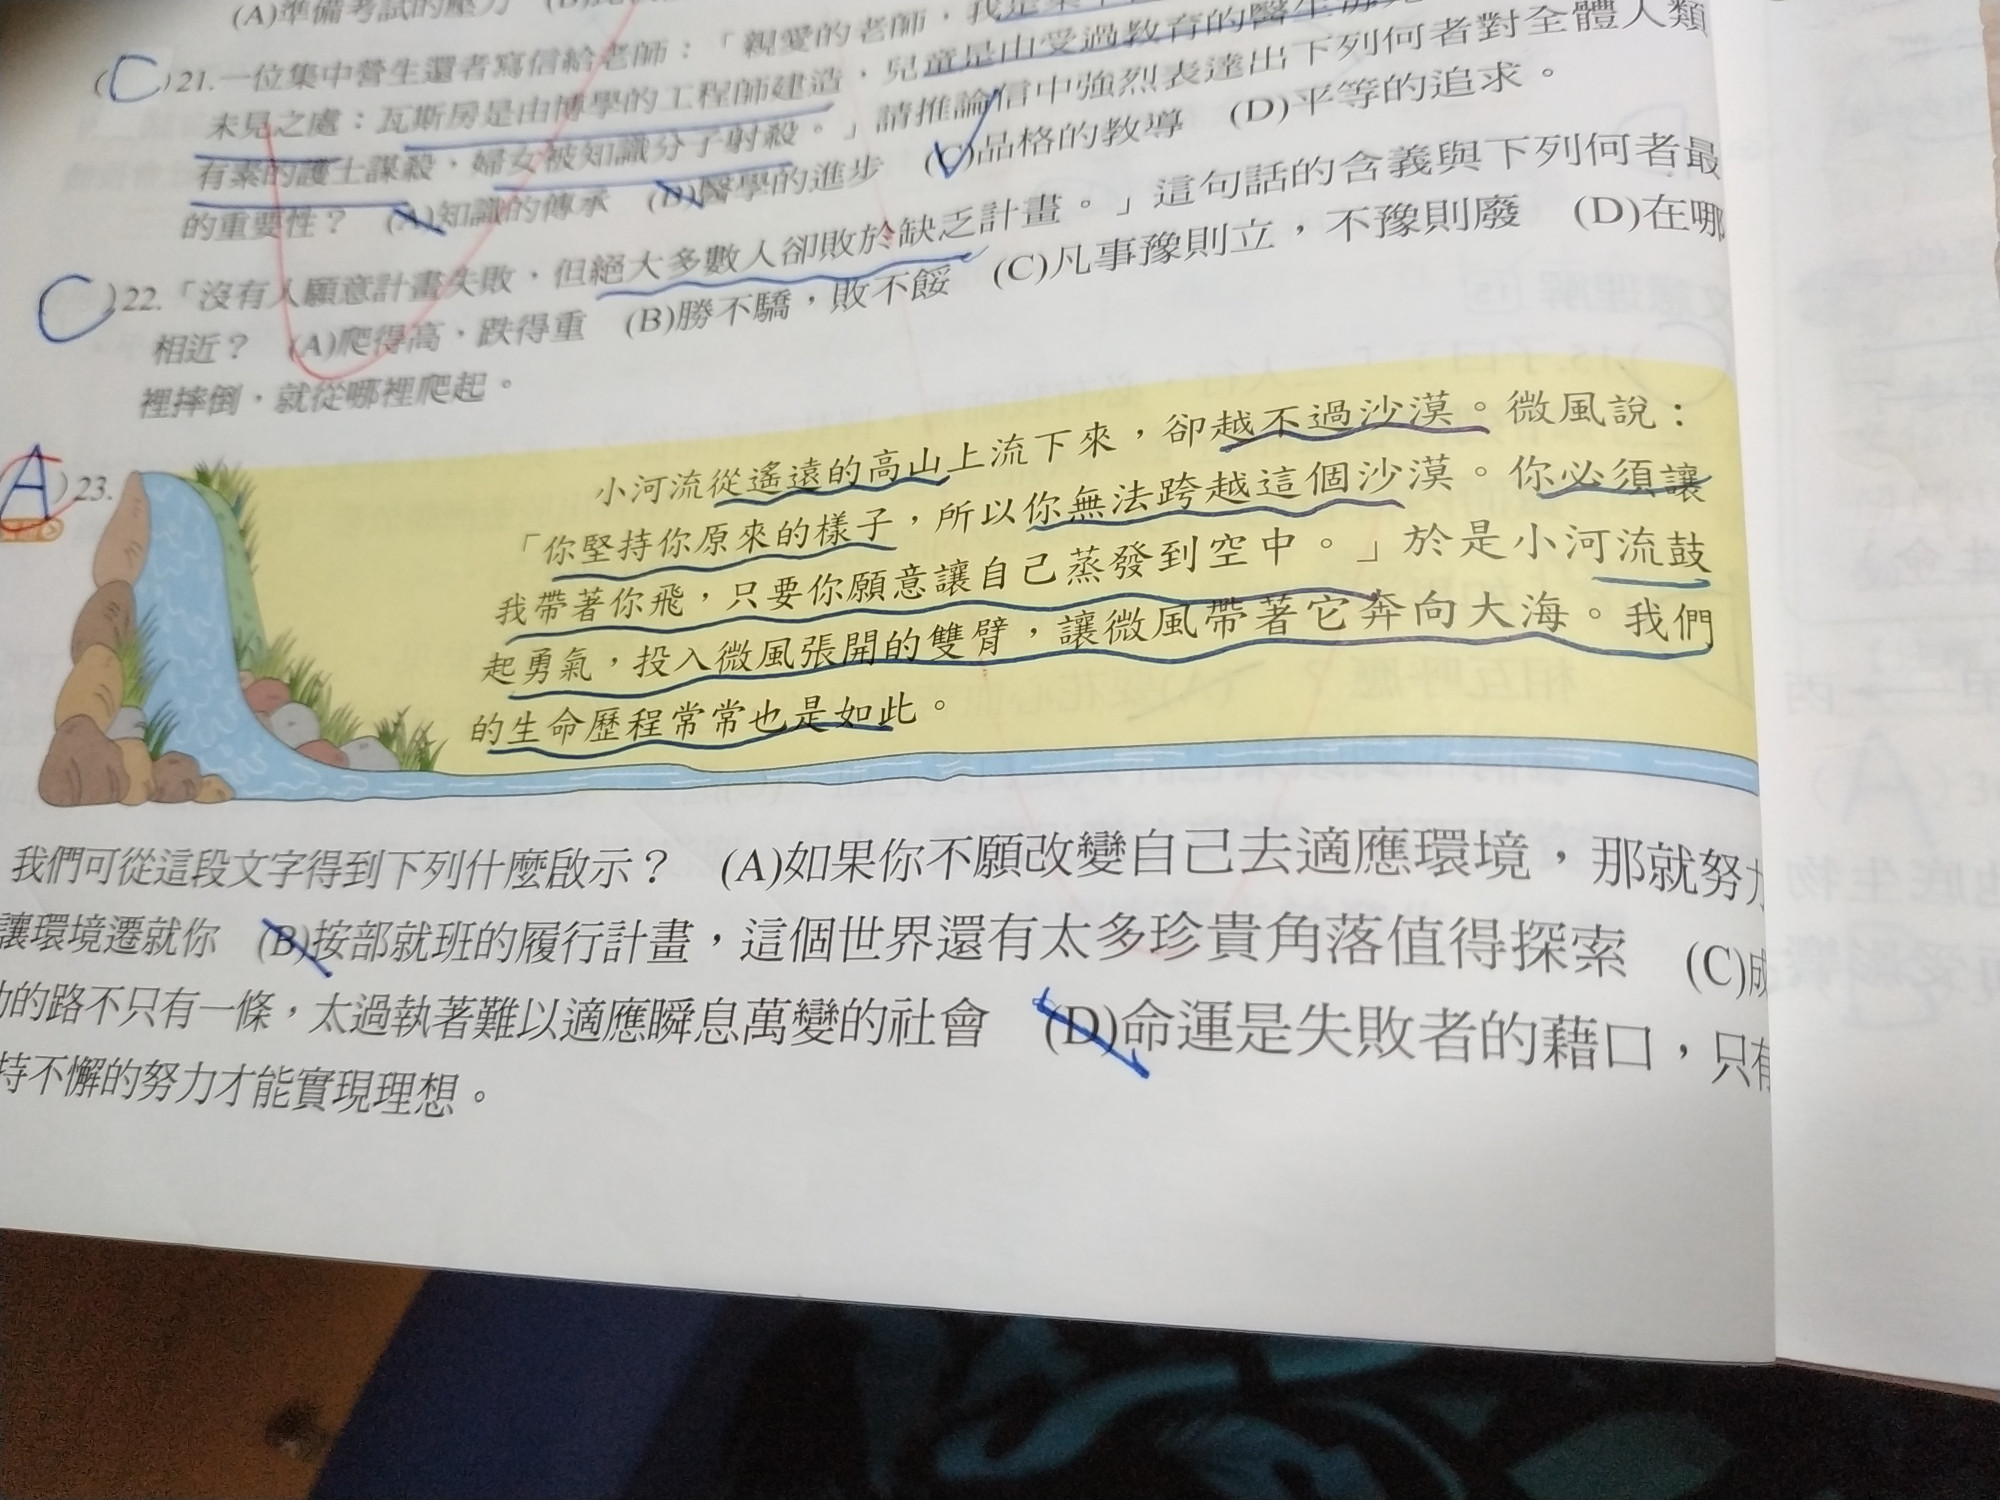 (A)準備考試的壓力
(C)21.一位集中營生還者寫信給老師：「親愛的老師，我是集中
未見之處：瓦斯房是由博學的工程師建造，兒童是由受過教育的醫生
有素的護士謀殺，婦女被知識分子射殺。」請推論信中強烈表達出下列何者對全體人類
的重要性？　(A)知識的傳承　(B)醫學的進步　(C)品格的教導　(D)平等的追求。
C)22.「沒有人願意計畫失敗，但絕大多數人卻敗於缺乏計畫。」這句話的含義與下列何者最
相近？　(A)爬得高，跌得重　(B)勝不驕，敗不餒　(C)凡事豫則立，不豫則廢　(D)在哪
裡摔倒，就從哪裡爬起。
A)23.
小河流從遙遠的高山上流下來，卻越不過沙漠。微風說：
「你堅持你原來的樣子，所以你無法跨越這個沙漠。你必須讓
我帶著你飛，只要你願意讓自己蒸發到空中。」於是小河流鼓
起勇氣，投入微風張開的雙臂，讓微風帶著它奔向大海。我們
的生命歷程常常也是如此。
我們可從這段文字得到下列什麼啟示？　(A)如果你不願改變自己去適應環境，那就努力
讓環境遷就你　(B)按部就班的履行計畫，這個世界還有太多珍貴角落值得探索　(C)成
功的路不只有一條，太過執著難以適應瞬息萬變的社會　(D)命運是失敗者的藉口，只有
持不懈的努力才能實現理想。